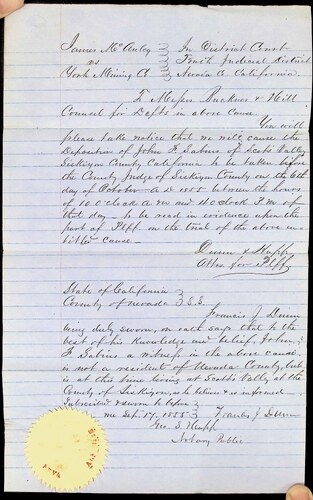 James McAuley } In District Court
vs } Tenth Judicial District
York Mining Co } Nevada Co. California
To Messrs Buckner & Hill
Counsel for Defts in above Cause
You will
please take notice that we will cause the
Deposition of John F. Sabins of Scots Valley
Siskiyou County California to be taken before
the County Judge of Siskiyou County on the 6th
day of October A D 1855 between the hours
of 10 O'clock A M and 4 O'Clock P.M of
that day - to be read in evidence upon the
part of Plff on the trial of the above en-
titled cause -
Dunn & Hupp
Attos for Plff
State of California
County of Nevada } S.S.
Francis J. Dunn
being duly sworn, on oath says that to the
best of his knowledge and belief, John
F Sabins a witness in the above cause
is not a resident of Nevada County, but
is at this time living at Scotts Valley at the
County of Siskiyou, as he believes & is informed.
Subscribed & sworn to before }
me Sep. 17, 1855 } Francis J Dunn
Geo. S. Hupp
Notary Public